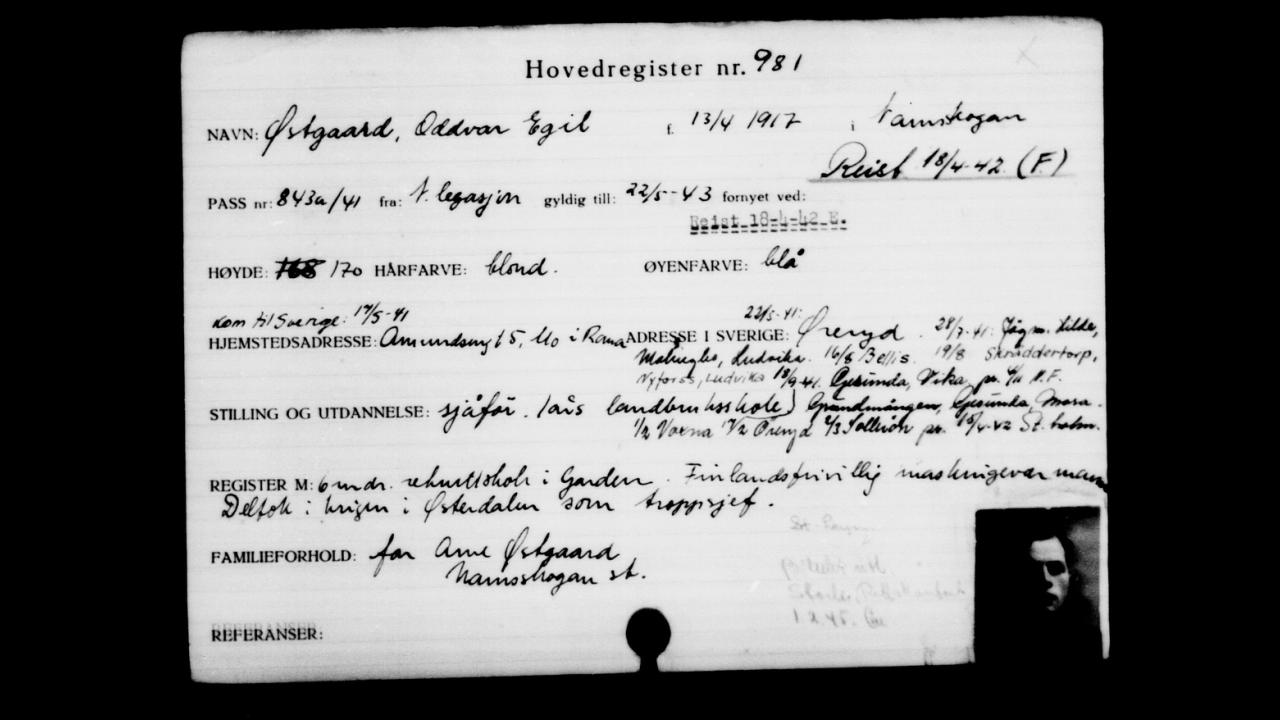 Hovedregister nr. 981
NAVN: Østgaard, Oddvar Egil f. 13/4 1917 i Namskogan
Reist 18/4-42 (F.)
PASS nr: 843a/41 fra: N. legasjon gyldig till: 22/5-43 fornyet ved:
Reist 18-4-42 E.
HØYDE: 168 170 HÅRFARVE: blond. ØYENFARVE: blå
kom til Sverige: 17/5-41 22/5-41:
HJEMSTEDSADRESSE: Amundsvegt 5, Mo i Rana ADRESSE I SVERIGE: Öreryd. 28/7-41:
Ludvika. 16/8 19/8 Skräddertorp,
Nyfors, Ludvika 18/9-41. Gesunda, Vika, pr. H.F.
STILLING OG UTDANNELSE: sjåför. 1 års landbruksskole) Gesunda, Mora.
1/2 Voxna Öreryd 2/3 Sollerön pr. St.holm.
REGISTER M: 6 mndr. rekruttskole i Garden. Finlandsfrivillig maskingevær mann
Deltok i krigen i Østerdalen som troppsjef.
FAMILIEFORHOLD: far Arne Østgaard
Namsskogan st.
1.2.45.
REFERANSER: